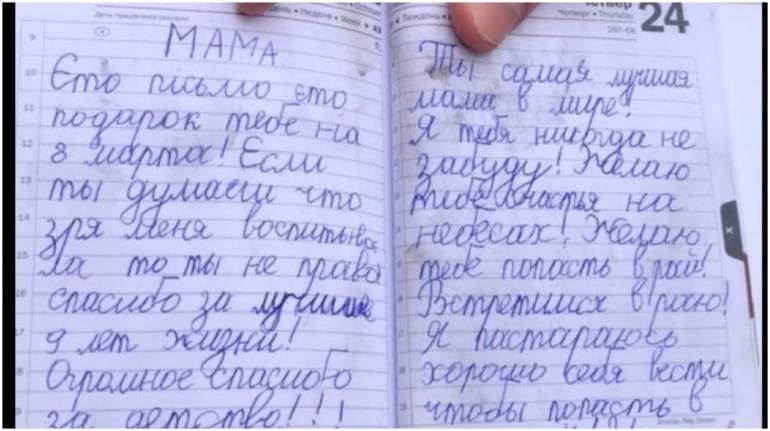 День • Неделя • Week
МАМА
9
Єто письмо єто
10
подарок тебе на
8 марта! Если
12
ты думаеш что
13
зря меня воспитыва
14
ла то ты не права
спасибо за лучшие
16
9 лет жизни!
Огромное спасибо
за детство!!!
Тиждень
Четвер
Четверг • Thursday
24
297-68
Ты самая лучшая
мама в мире!
Я тебя никогда не
забуду! Желаю
тебе счастья на
небесах! Желаю
тебе попасть в рай!
Встретимся в раю!
Я пастараюсь
хорошо себя вести
чтобы попасть в
X